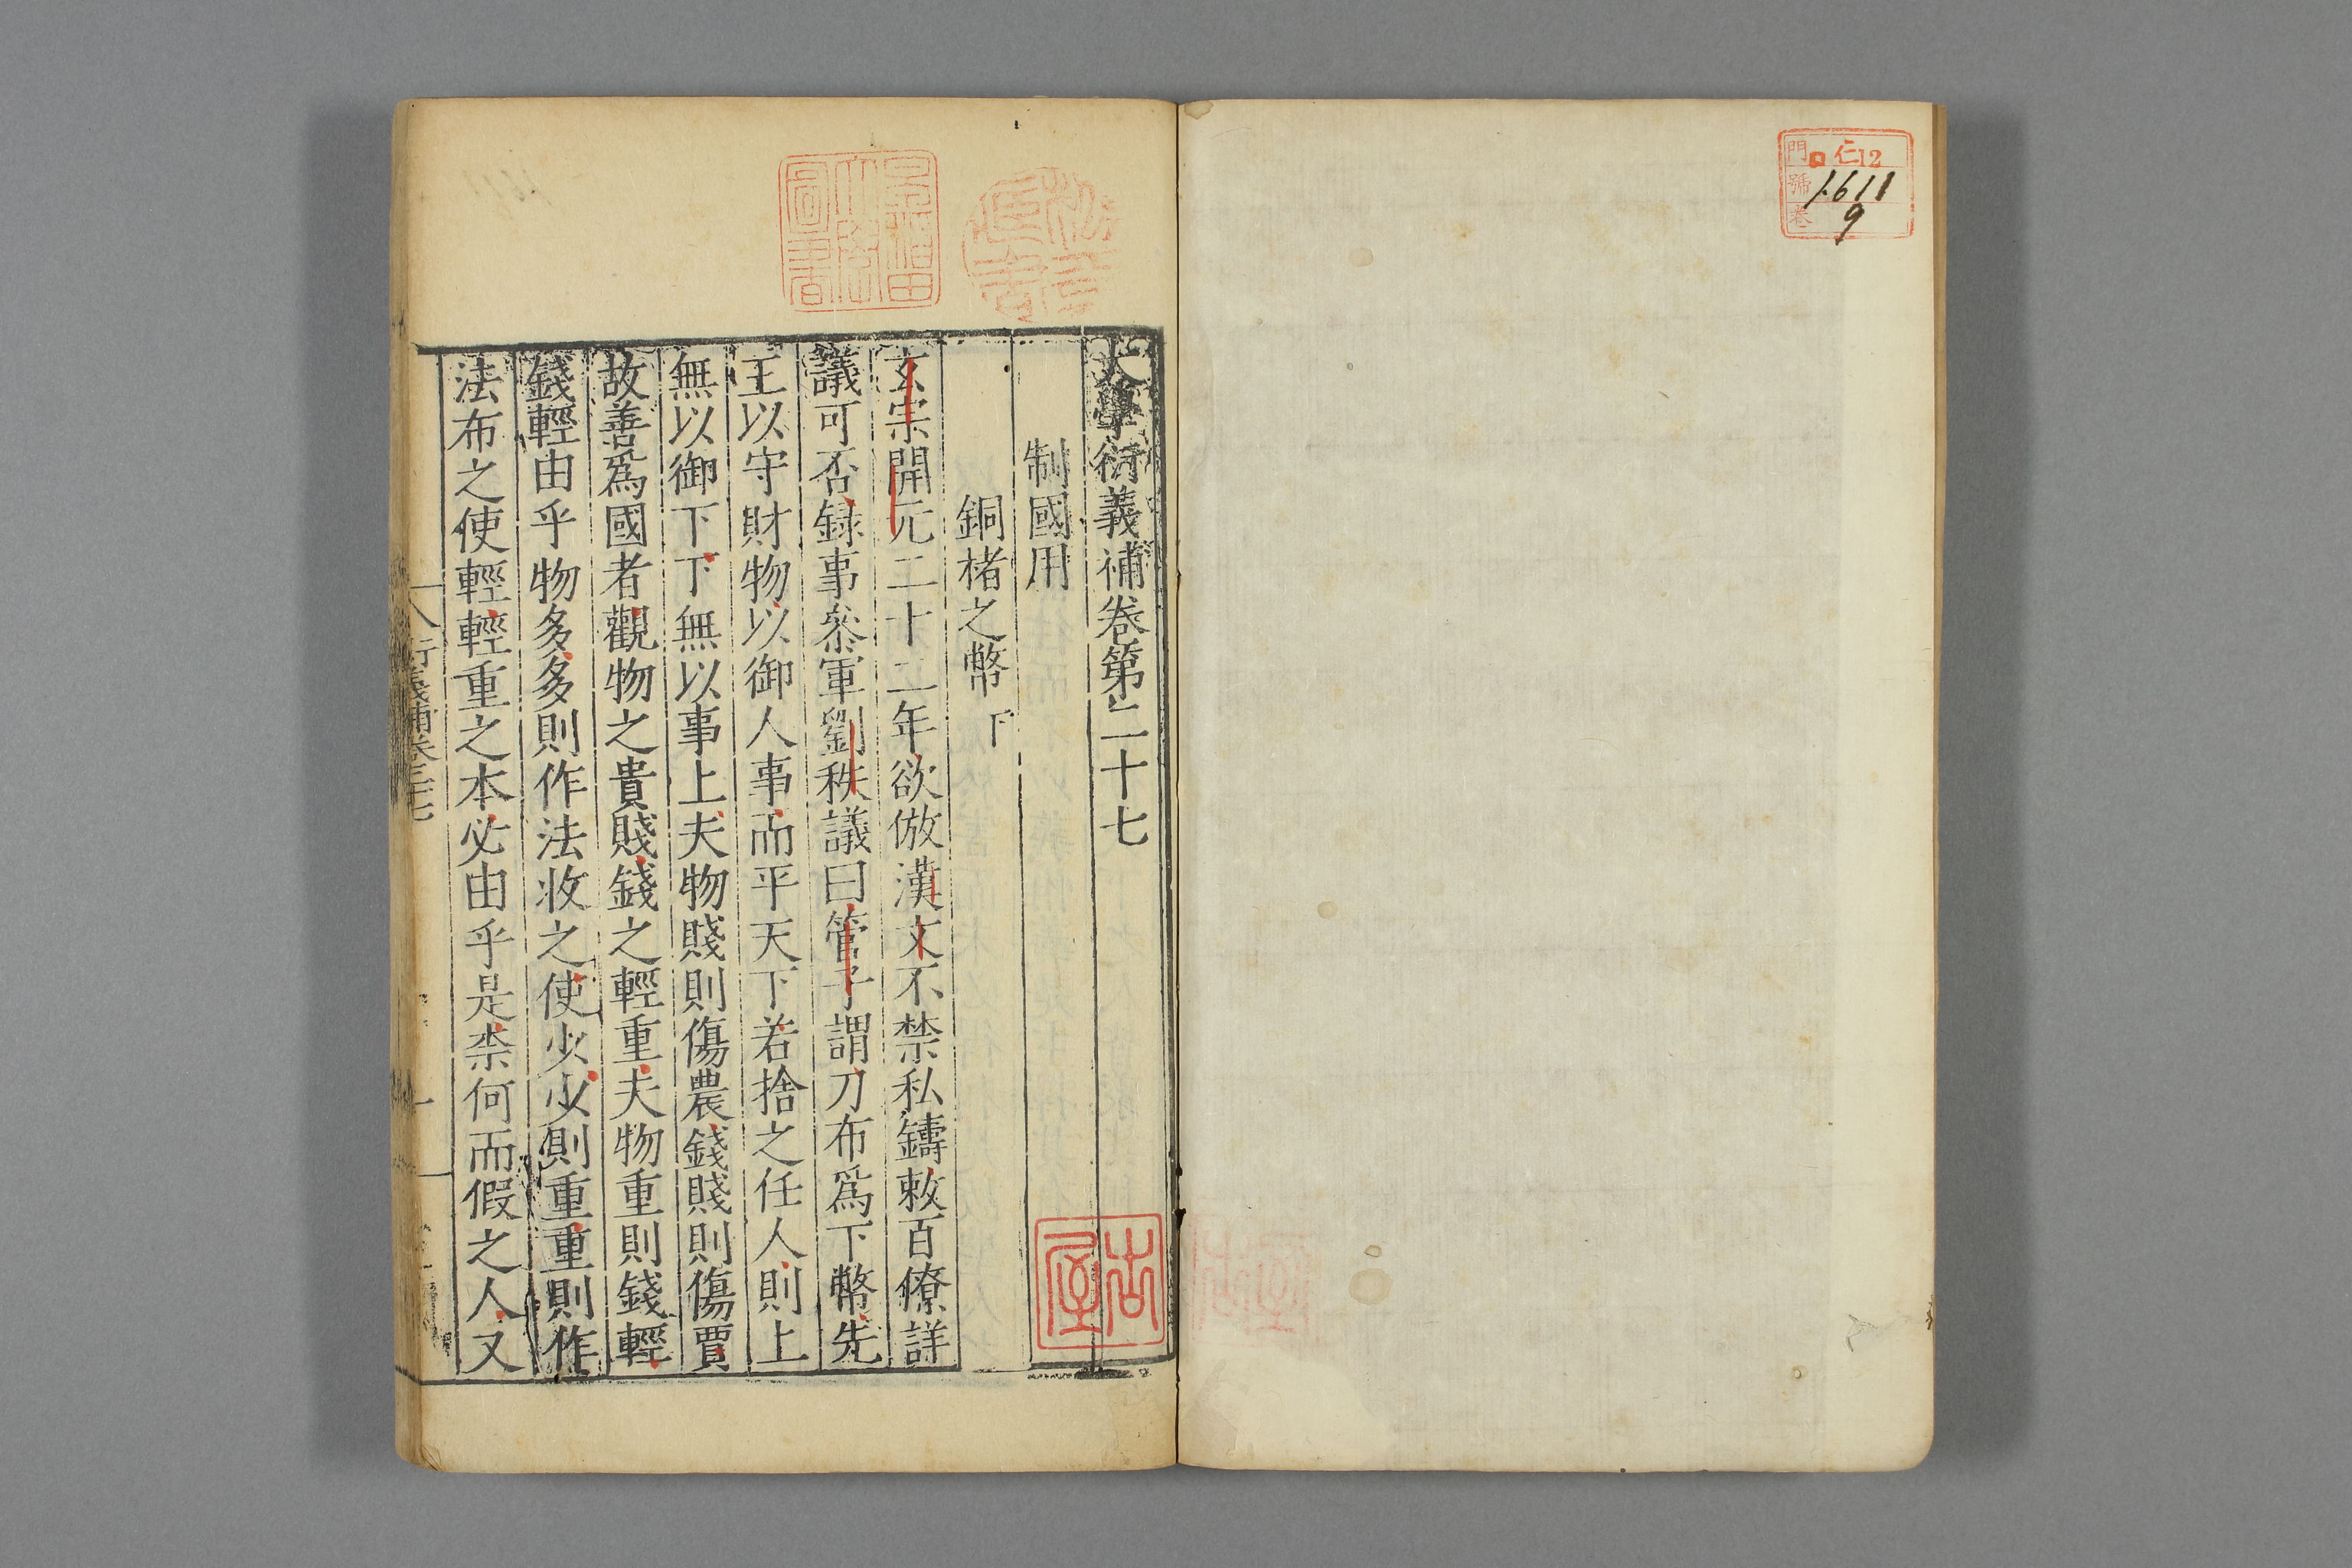 門 仁12
號 1611
卷 9
大學衍義補卷第二十七
制國用
銅楮之幣 下
玄宗開元二十二年欲倣漢文不禁私鑄敕百僚詳
議可否錄事叅軍劉秩議曰管子謂刀布爲下幣先
王以守財物以御人事而平天下若捨之任人則上
無以御下下無以事上夫物賤則傷農錢賤則傷賈
故善爲國者觀物之貴賤錢之輕重夫物重則錢輕
錢輕由乎物多多則作法收之使少少則重重則作
法布之使輕輕重之本必由乎是柰何而假之人又
早稲田大學圖書